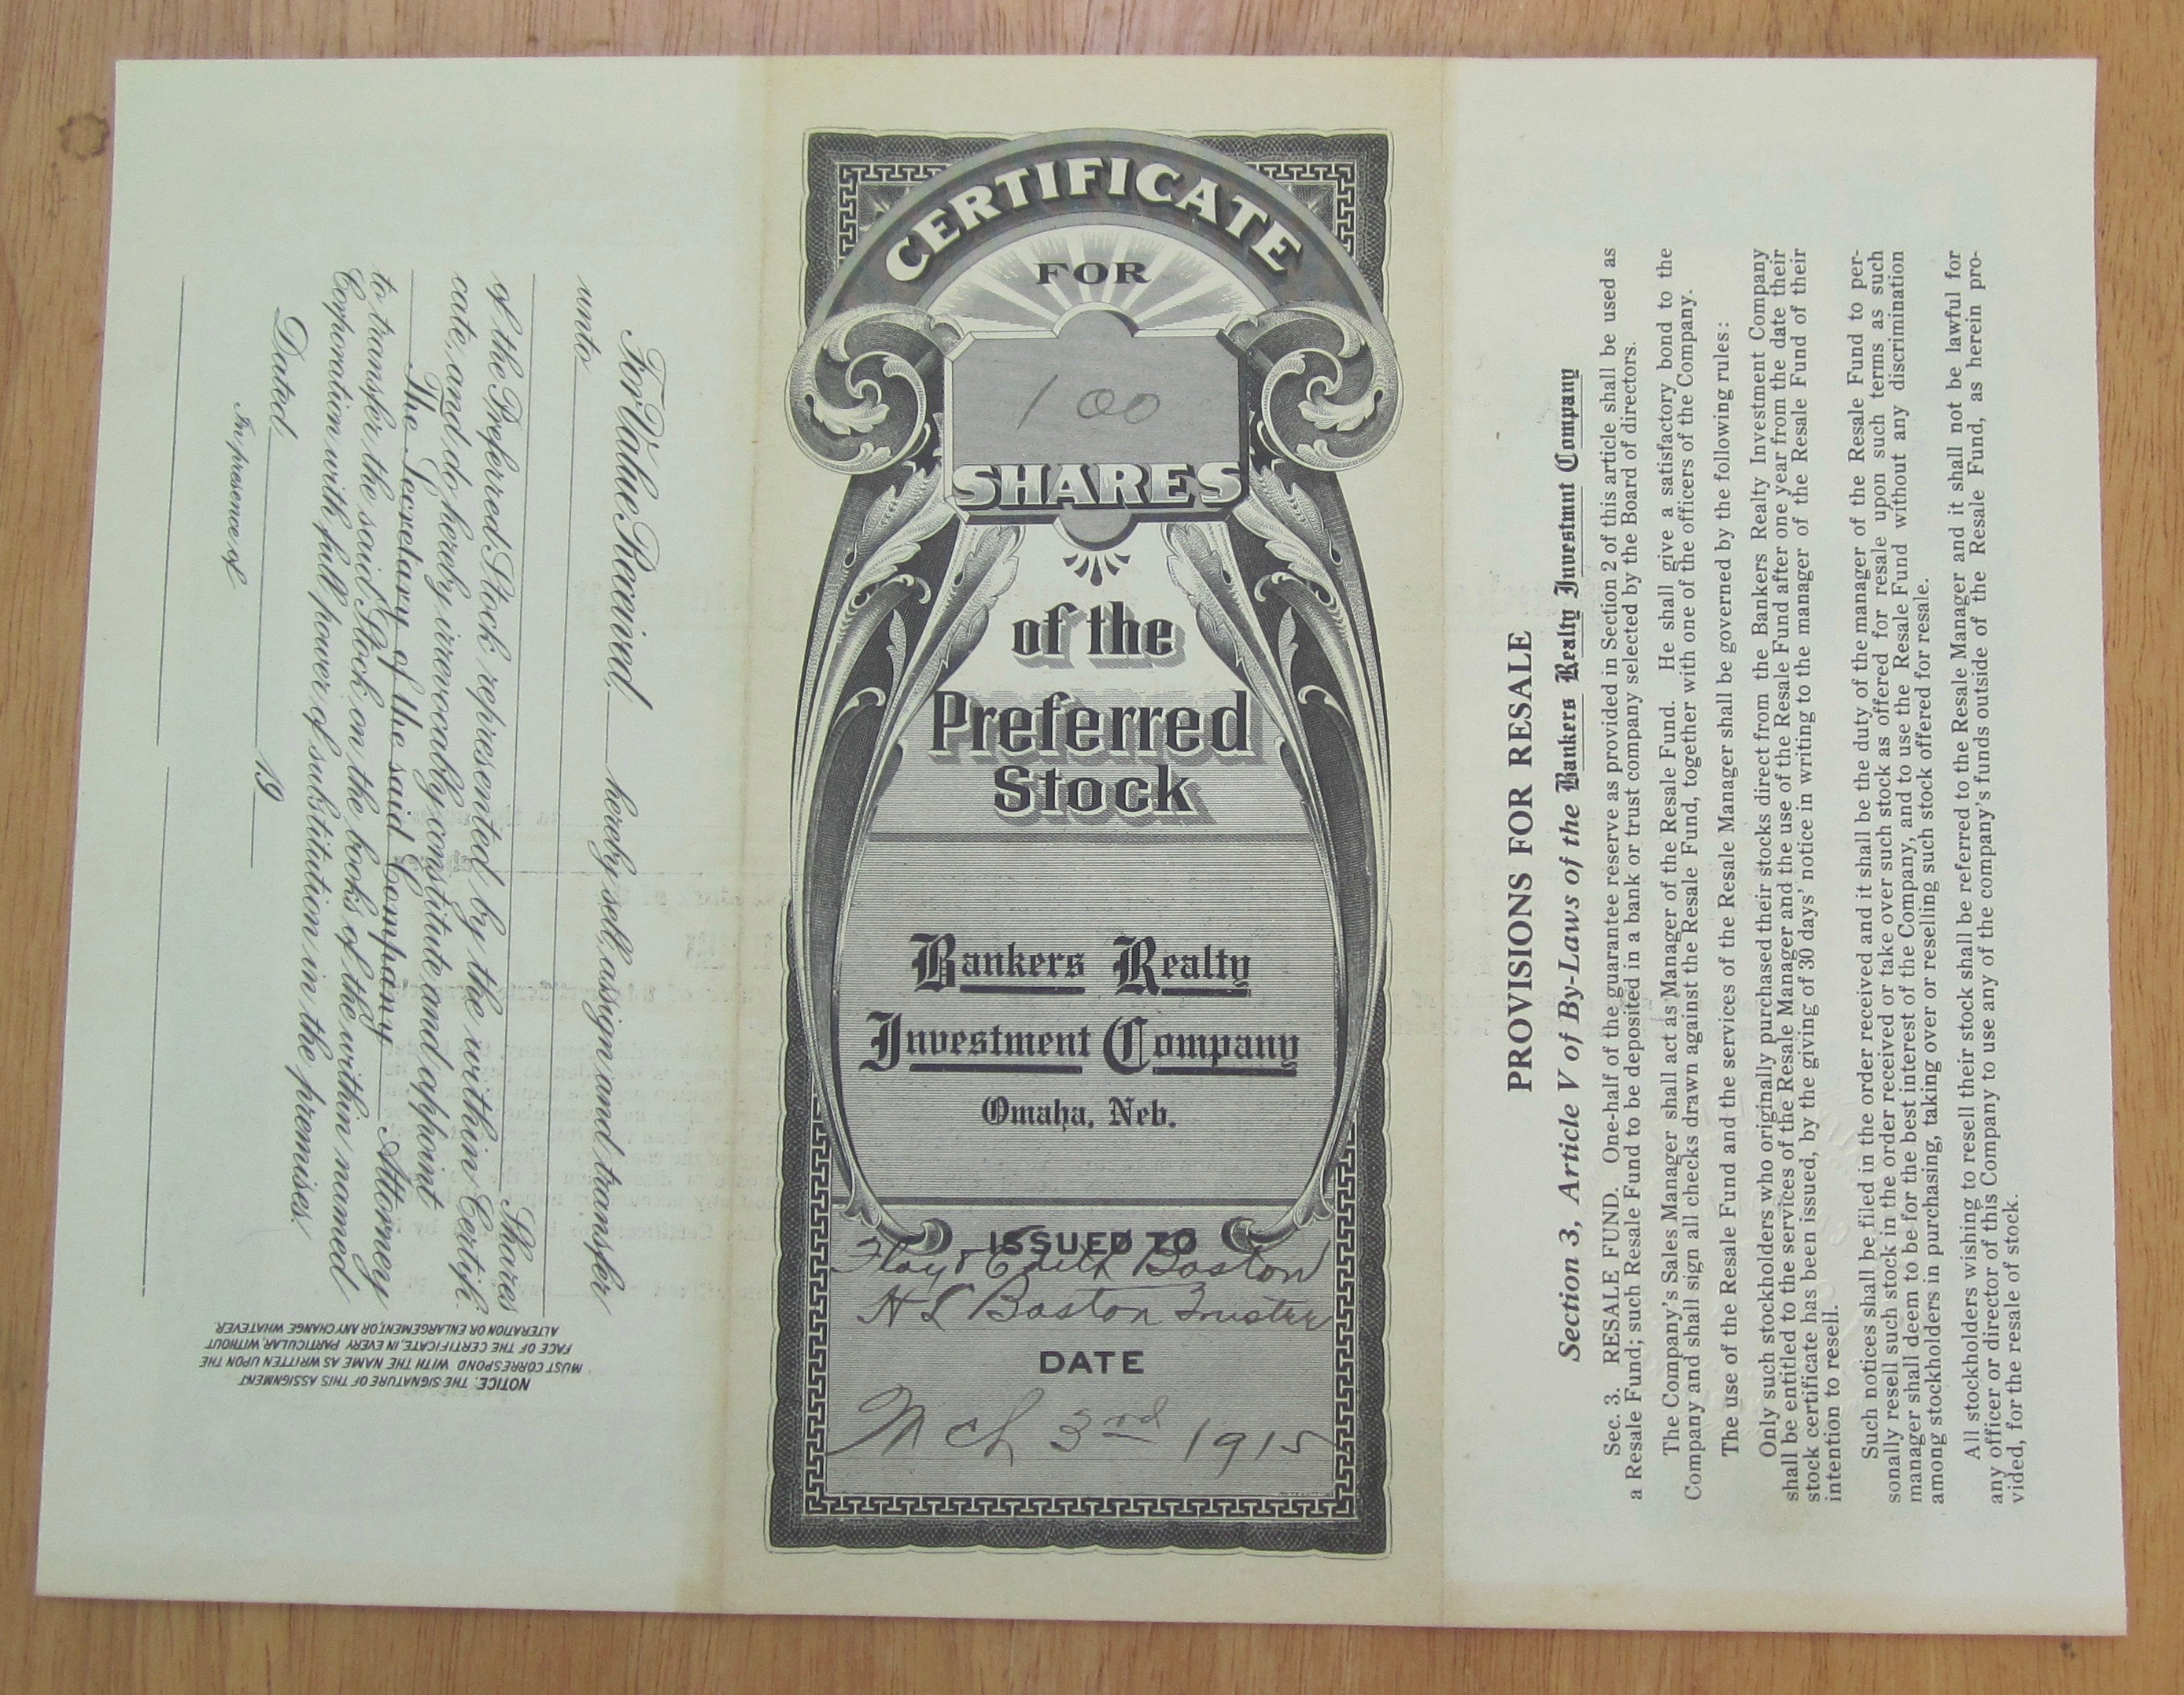 For Value Received, hereby sell, assign and transfer
unto
Shares
of the Preferred Stock represented by the within Certifi-
cate, and do hereby irrevocably constitute and appoint
The Secretary of the said Company Attorney
to transfer the said Stock on the books of the within named
Corporation with full power of substitution in the premises.
Dated 19
In presence of
NOTICE. THE SIGNATURE OF THIS ASSIGNMENT
MUST CORRESPOND WITH THE NAME AS WRITTEN UPON THE
FACE OF THE CERTIFICATE, IN EVERY PARTICULAR, WITHOUT
ALTERATION OR ENLARGEMENT, OR ANY CHANGE WHATEVER.
CERTIFICATE
FOR
100
SHARES
of the
Preferred
Stock
Bankers Realty
Investment Company
Omaha, Neb.
ISSUED TO
Edith Boston
H L Boston Trustee
DATE
Mch 3rd 1915
PROVISIONS FOR RESALE
Section 3, Article V of By-Laws of the Bankers Realty Investment Company
Sec. 3. RESALE FUND. One-half of the guarantee reserve as provided in Section 2 of this article shall be used as
a Resale Fund; such Resale Fund to be deposited in a bank or trust company selected by the Board of directors.
The Company's Sales Manager shall act as Manager of the Resale Fund. He shall give a satisfactory bond to the
Company and shall sign all checks drawn against the Resale Fund, together with one of the officers of the Company.
The use of the Resale Fund and the services of the Resale Manager shall be governed by the following rules:
Only such stockholders who originally purchased their stocks direct from the Bankers Realty Investment Company
shall be entitled to the services of the Resale Manager and the use of the Resale Fund after one year from the date their
stock certificate has been issued, by the giving of 30 days' notice in writing to the manager of the Resale Fund of their
intention to resell.
Such notices shall be filed in the order received and it shall be the duty of the manager of the Resale Fund to per-
sonally resell such stock in the order received or take over such stock as offered for resale upon such terms as such
manager shall deem to be for the best interest of the Company, and to use the Resale Fund without any discrimination
among stockholders in purchasing, taking over or reselling such stock offered for resale.
All stockholders wishing to resell their stock shall be referred to the Resale Manager and it shall not be lawful for
any officer or director of this Company to use any of the company's funds outside of the Resale Fund, as herein pro-
vided, for the resale of stock.